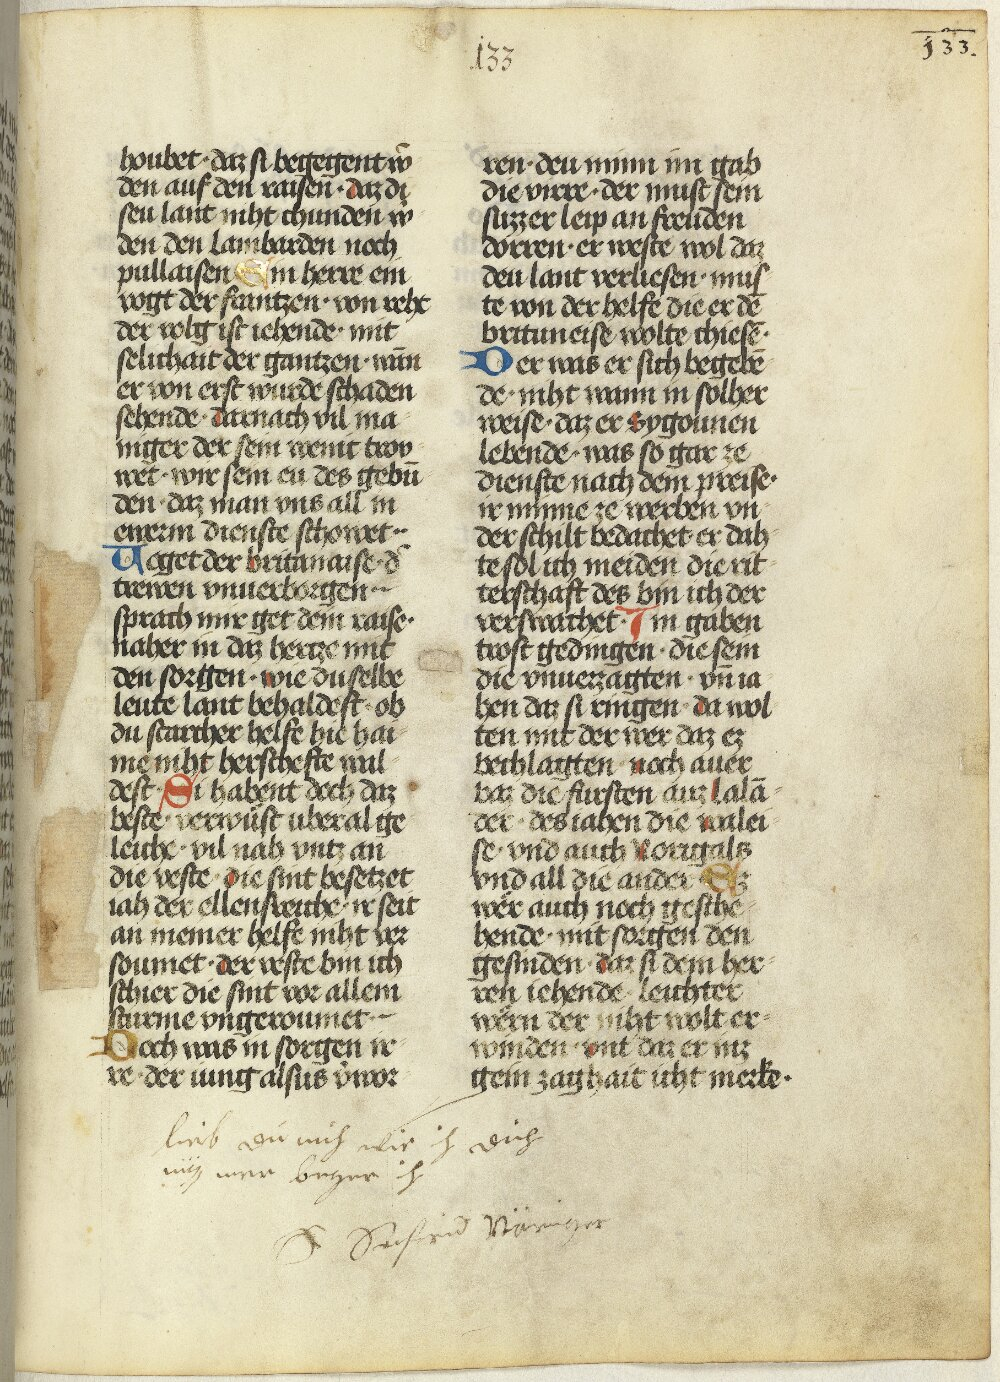 133
133.
houbet · daz si begegent wͦ
den auf den raisen̄ · daz di
seu lant niht chunden wͦ
den den lambarden noch
pullaisen Ein herre ein
vogt der frantzen · von reht
der volg ist iehende · mit
selichait der gantzen · wān
er von erst wurde schaden
sehende · darnach vil ma
niger der sein wenit trov
wet · wir sein eu des gebū
den · daz man vns all in
ewerm dienste schowet ·
Voget der britanaise · d̕
trewen vnuerborgen ·
sprach mir get dem raise ·
naher in daz hertze mit
den sorgen · wie du selbe
leute lant behaldest · ob
du starcher helfe hie hai
me niht herschefte wal
dest · Si habent doch daz
beste · verwůst vberal ge
leiche · vil nah vntz an
die veste · die sint besetzet
iah der ellensreiche · ir seit
an meiner helfe niht ver
soumet · der veste bin ich
schier die sint vor allem
sturme vngeroumet ·
Doch was in sorgen ir
re · der iung alsus v̊wor
ren · deu minn im gab
die virre · der must sein
suzzer leip an freuden
dorren · er weste wol daz
deu lant verliesen · mus
te von der helfe die er dē
brituneise wolte chiesē ·
Der was er sich begebē
de · niht wann in solher
weise · daz er Sygounen
lebende · was so gar ze
dienste nach dem preise ·
ir minne ze werben vn
der schilt bedachet · er dah
te sol ich meiden die rit
terschaft des bin ich der
verswachet · Im gaben
trost gedingen · die sein
die vnuerzagten · vn̄ ia
hen daz si ringen · da wol
ten mit der wer daz ez
bechlagten · noch auer
baz die fursten auz lalā
der · des iahen die walei
se · vnd auch Norigals
vnd all die ander Ez
wer auch noch gesche
hende · mit sorgen den
gesinden · daz si dem her
ren iehende · leichter
wern der niht wolt er
winden · mit daz er niz
gein zaghait icht merke ·
lieb du mich wie ich dich
nitz mer beger ich
S Seifrid